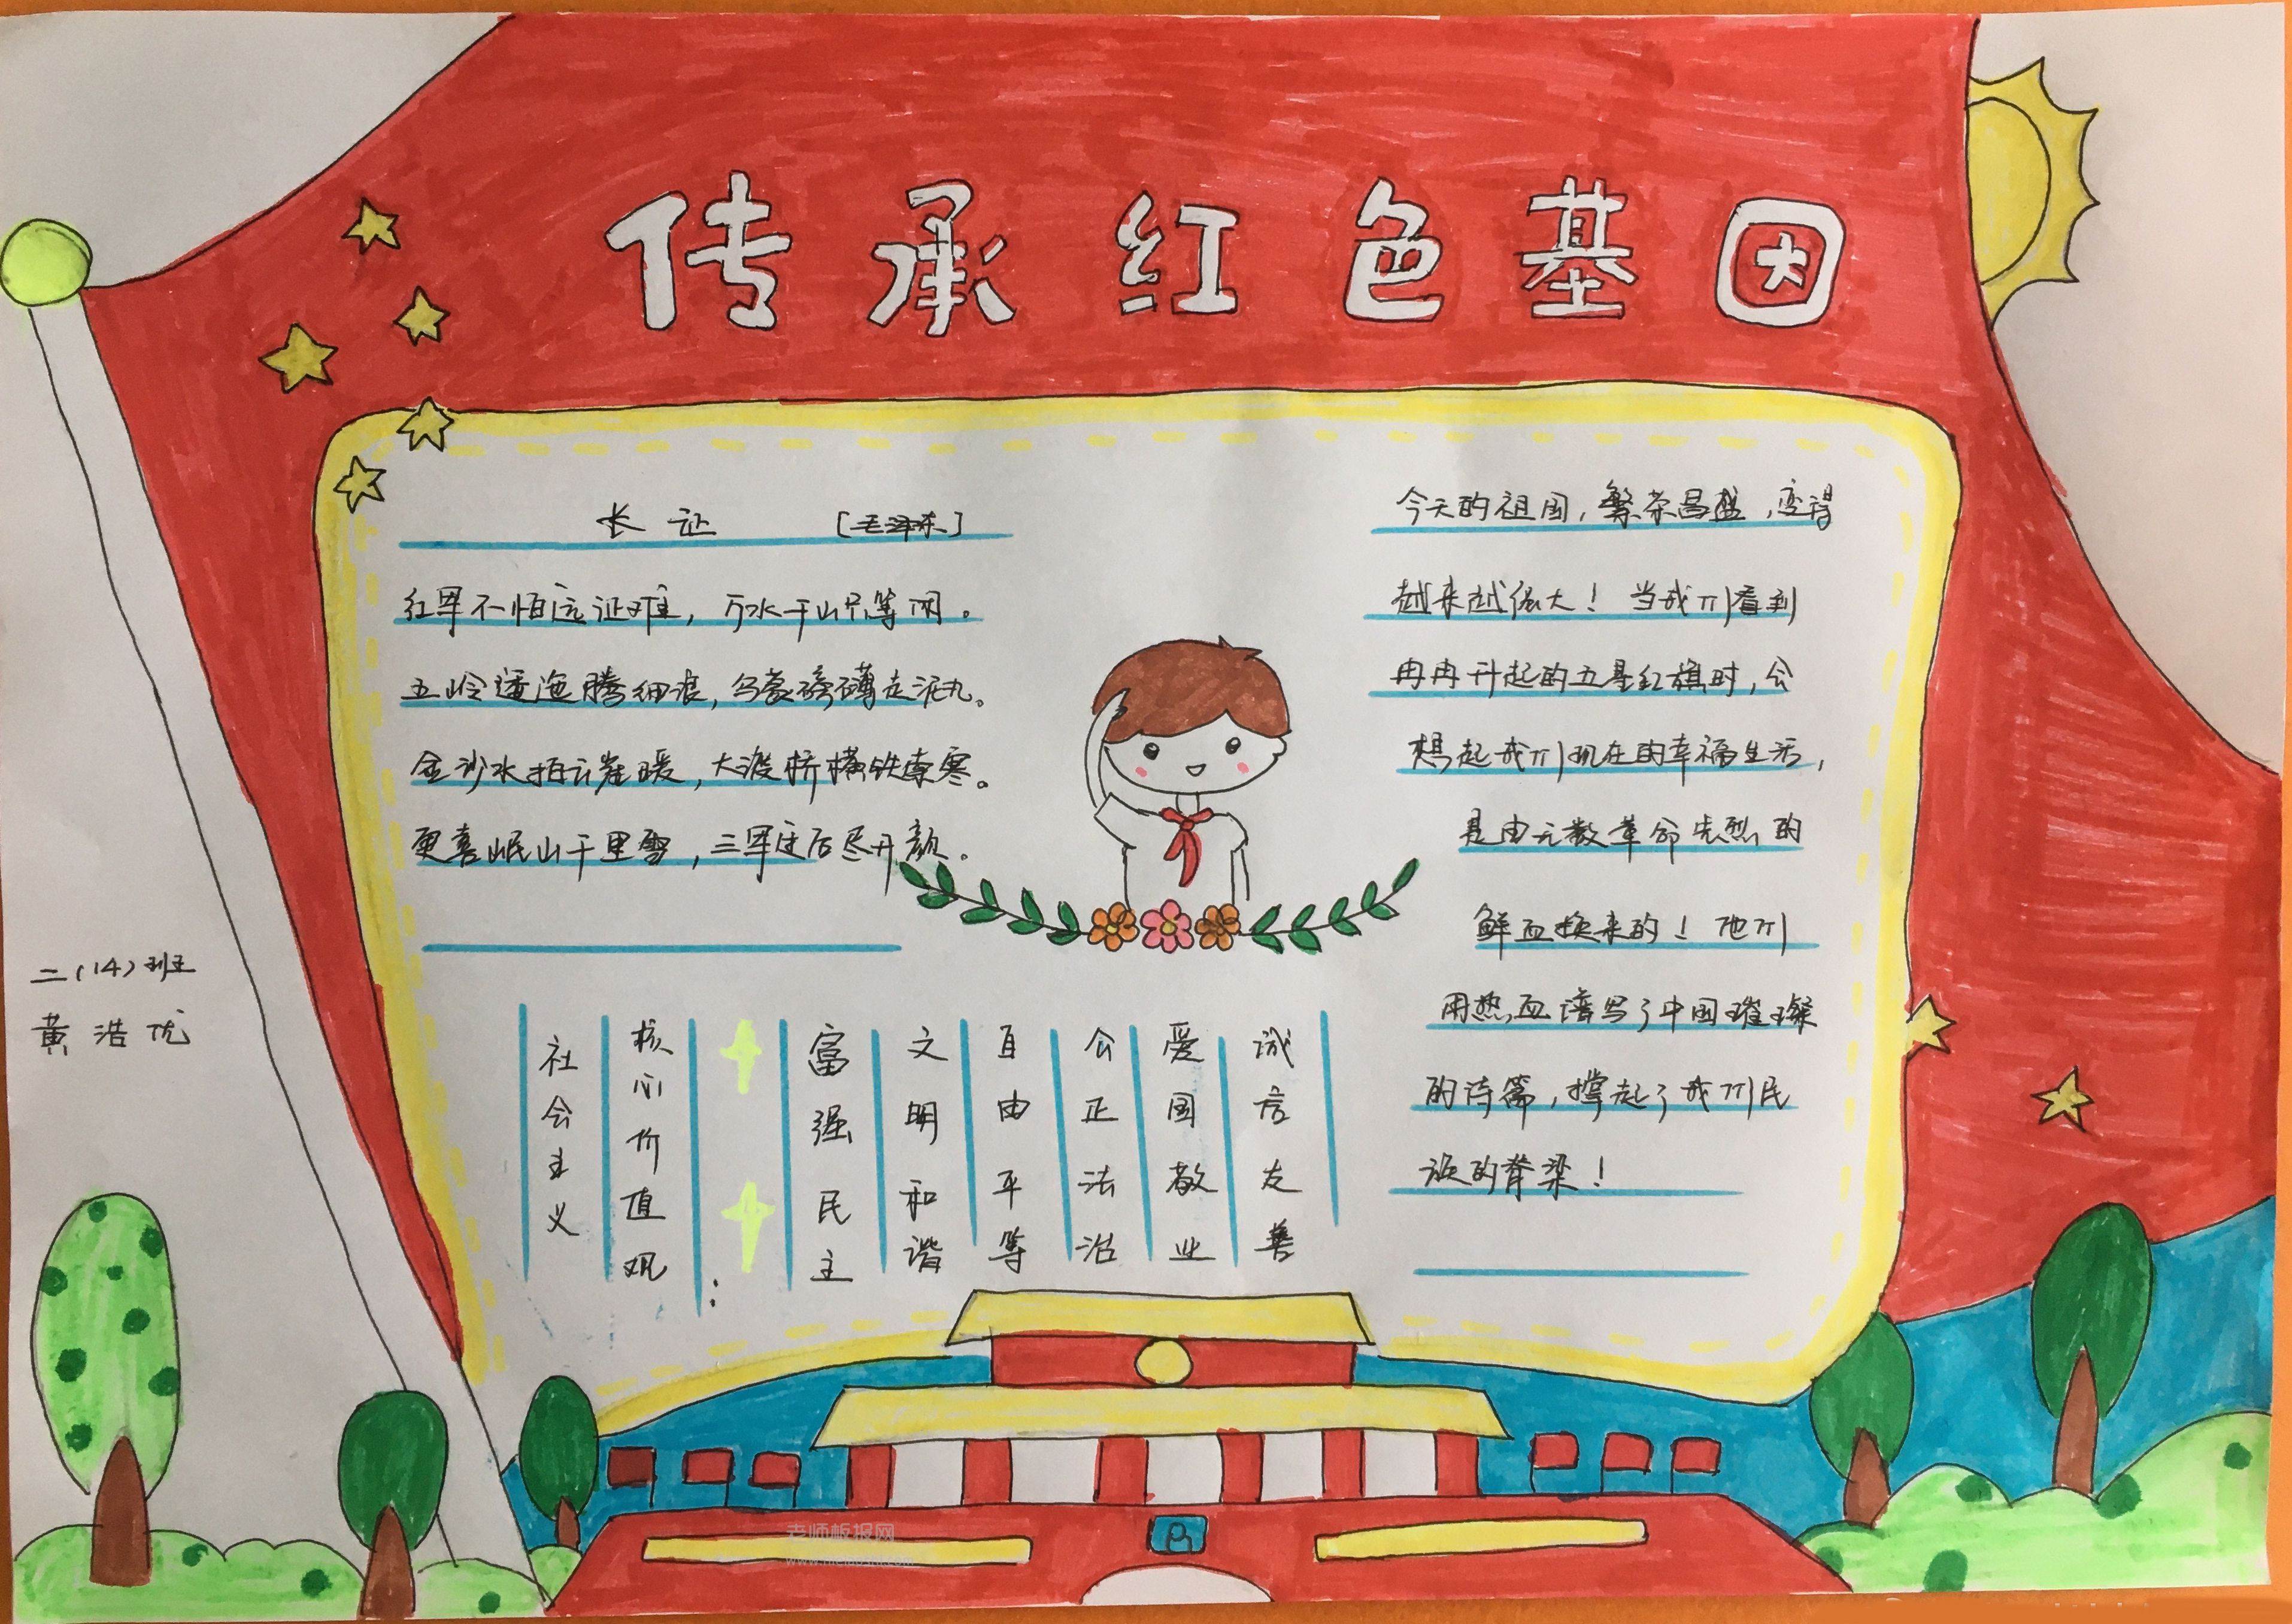 传承红色基因
长 证 [毛泽东]
红军不怕远证难，万水千山只等闲。
五岭逶迤腾细浪，乌蒙磅礴走泥丸。
金沙水拍云崖暖，大渡桥横铁索寒。
更喜岷山千里雪，三军过后尽开颜。
今天的祖国，繁荣昌盛，变得
越来越强大！当我们看到
冉冉升起的五星红旗时，会
想起我们现在的幸福生活，
是由无数革命先烈的
鲜血换来的！他们
用热血谱写了中国璀璨
的诗篇，撑起了我们民
族的脊梁！
二(14)班
黄浩优
社会主义
核心价值观：
富强民主
文明和谐
自由平等
公正法治
爱国敬业
诚信友善
老师板报网